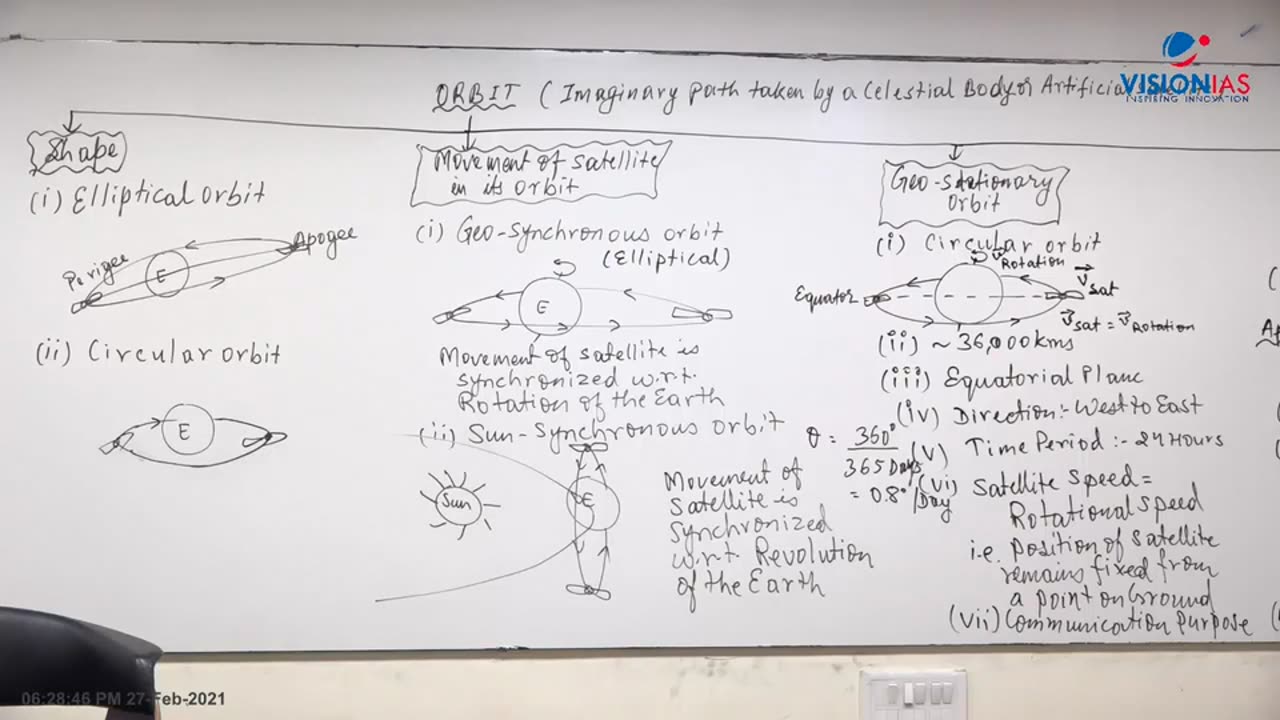 VISIONIAS
INSPIRING INNOVATION
ORBIT (Imaginary path taken by a Celestial Body or Artificial
Shape
(i) Elliptical orbit
Perigee
E
Apogee
(ii) Circular orbit
E
Movement of satellite
in its orbit
(i) Geo-Synchronous orbit
(Elliptical)
E
Movement of satellite is
synchronized w.r.t.
Rotation of the Earth
(ii) Sun-Synchronous orbit
Sun
E
Movement of
satellite is
synchronized
w.r.t. Revolution
of the Earth
θ = 360°
365 Days
= 0.8°/Day
Geo-stationary
orbit
(i) Circular orbit
V Rotation
Equator
V sat
V sat = V Rotation
(ii) ~36,000 kms
(iii) Equatorial Plane
(iv) Direction:- West to East
(v) Time Period :- 24 Hours
(vi) Satellite speed =
Rotational speed
i.e. position of satellite
remains fixed from
a point on Ground
(vii) Communication purpose
06:28:46 PM 27-Feb-2021